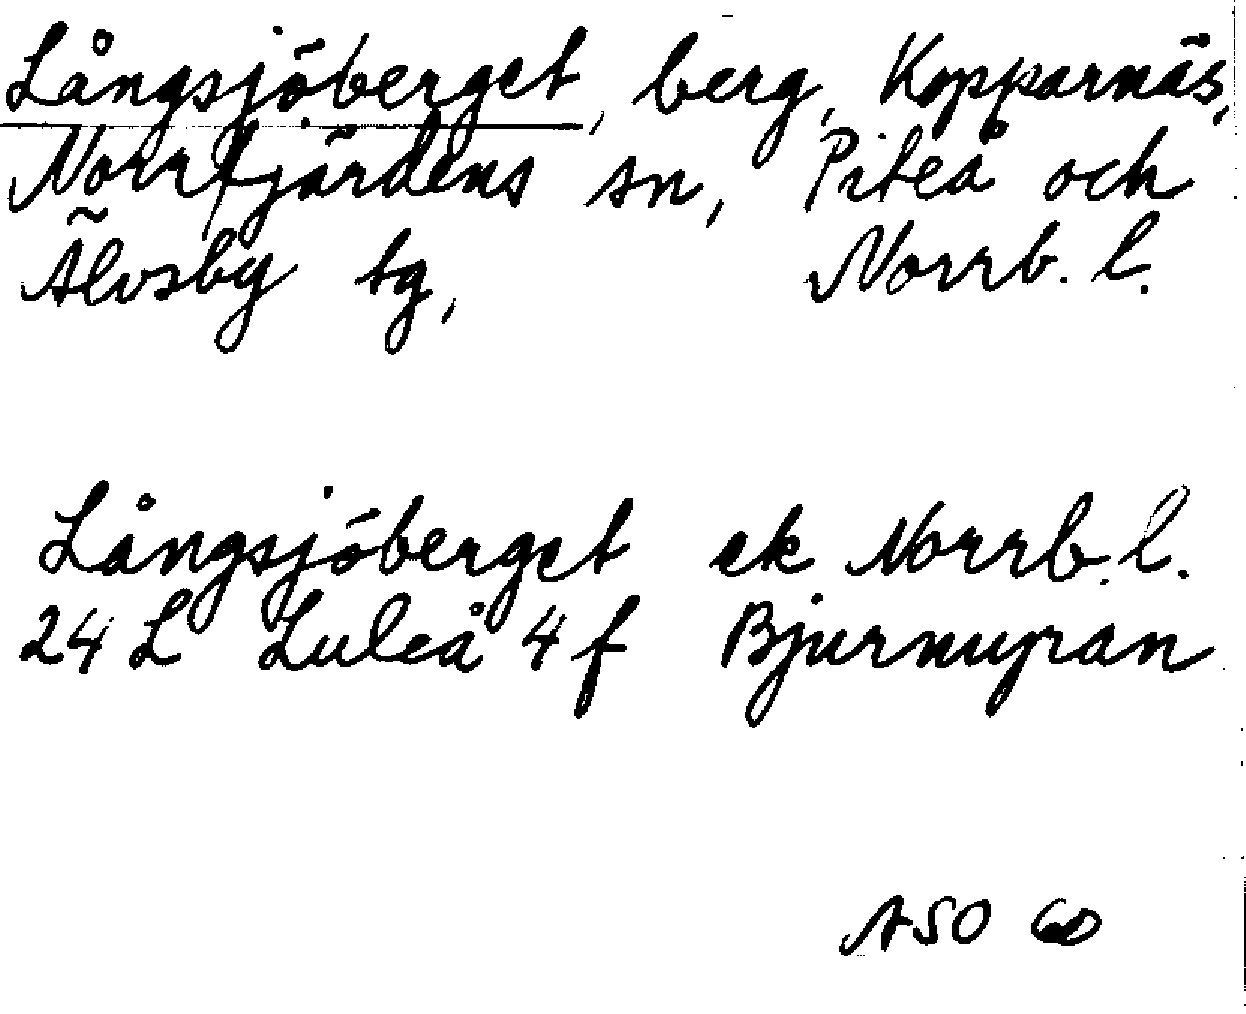 Långsjöberget, berg, Kopparnäs,
Norrfjärdens sn, Piteå och
Älvsby tg, Norrb. l.
Långsjöberget ek Norrb. l.
24 L Luleå 4 f Bjurmyran
ASO 60